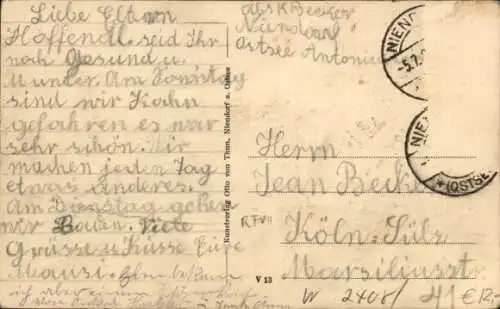 Liebe Eltern
Hoffendl. seid Ihr
noch Gesund u.
Munder. Am Sonntag
sind wir Kahn
gefahren es war
sehr schön. Wir
machen jeden Tag
etwas anderes.
Am Dienstag gehen
wir Baden. Viele
Grüsse u Küsse Eure
Mausi.
ich aber einen
Abs K Becker
Niendorf
Ostsee Antonius
Kunstverlag Otto von Thun, Niendorf a. Ostsee
V 13
NIEND
-5.7.
NIEN
(OSTSE
Herrn
Jean Becker
RFVII
Köln=Sülz
Marsiliusstr
W 2408/ 41 €12,-